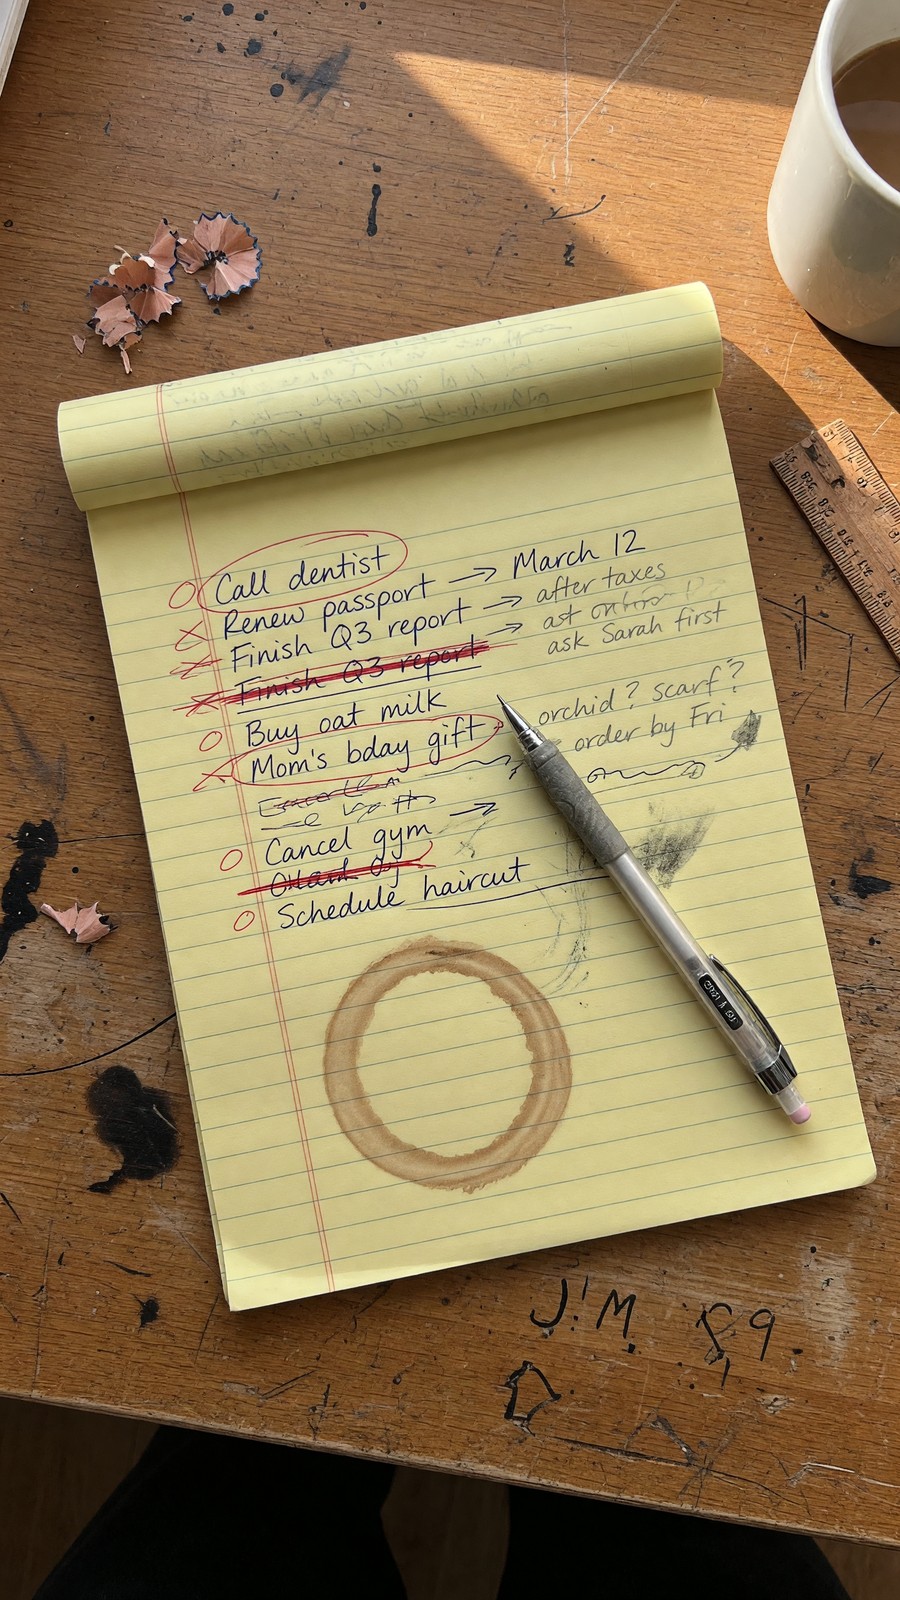 Call dentist
Renew passport → March 12
Finish Q3 report → after taxes
Finish Q3 report → ask Sarah first
Buy oat milk
Mom's bday gift → orchid? scarf?
order by Fri
Cancel gym →
Schedule haircut
J!M 89